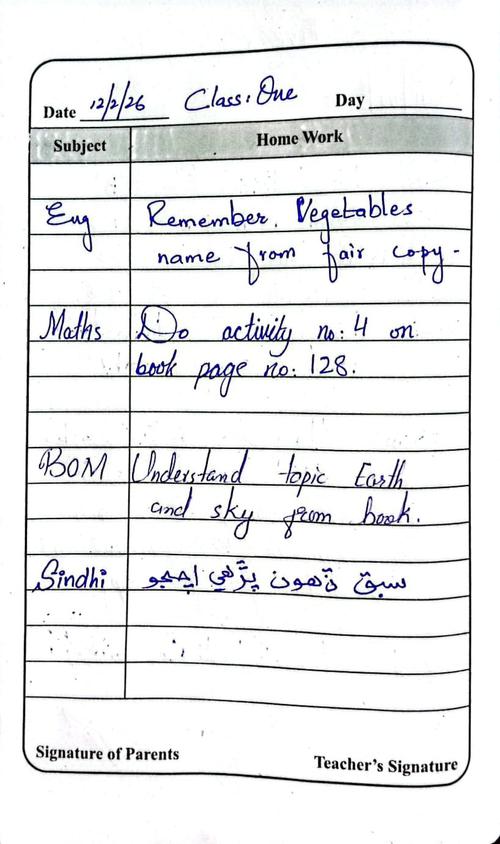 Date 12/2/26 Class: One Day
Subject Home Work
Eng Remember. Vegetables
name from fair copy -
Maths Do activity no: 4 on
book page no: 128.
BOM Understand topic Earth
and sky from book.
Sindhi سبق ڏهون پڙهي اچجو
Signature of Parents Teacher's Signature